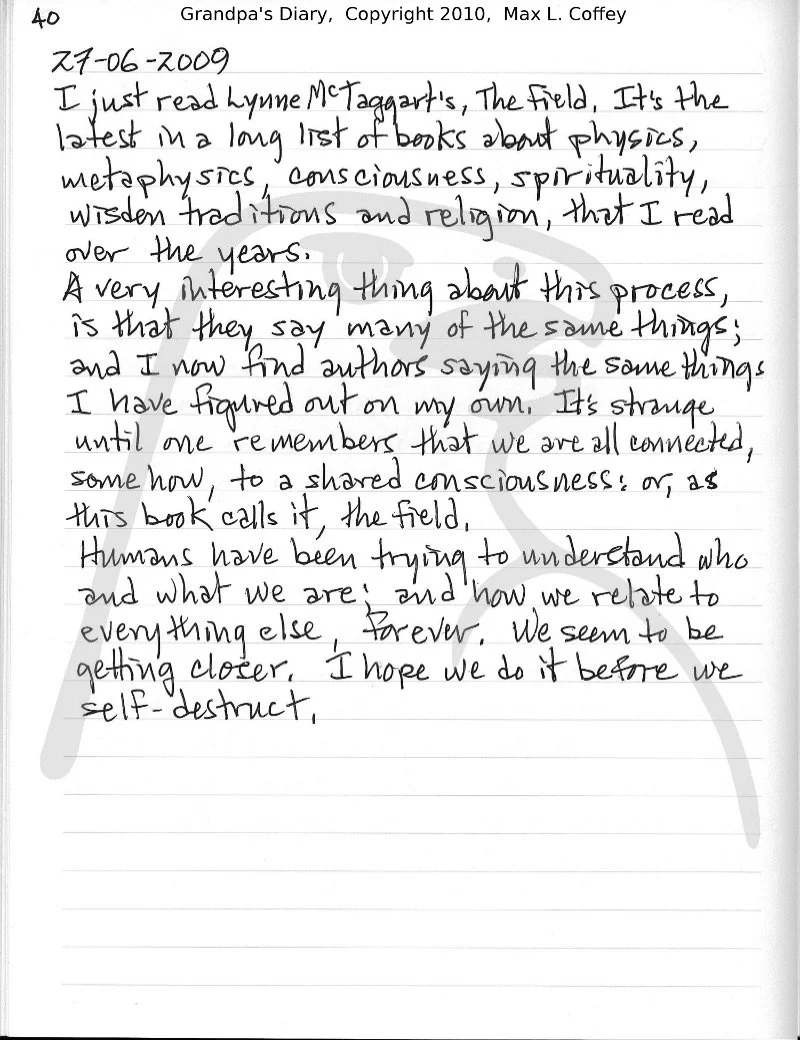 40
Grandpa's Diary, Copyright 2010, Max L. Coffey
27-06-2009
I just read Lynne McTaggart's, The Field. It's the
latest in a long list of books about physics,
metaphysics, consciousness, spirituality,
wisden traditions and religion, that I read
over the years.
A very interesting thing about this process,
is that they say many of the same things;
and I now find authors saying the same things
I have figured out on my own. It's strange
until one remembers that we are all connected,
somehow, to a shared consciousness: or, as
this book calls it, the field.
Humans have been trying to understand who
and what we are; and how we relate to
everything else, forever. We seem to be
getting closer. I hope we do it before we
self-destruct.